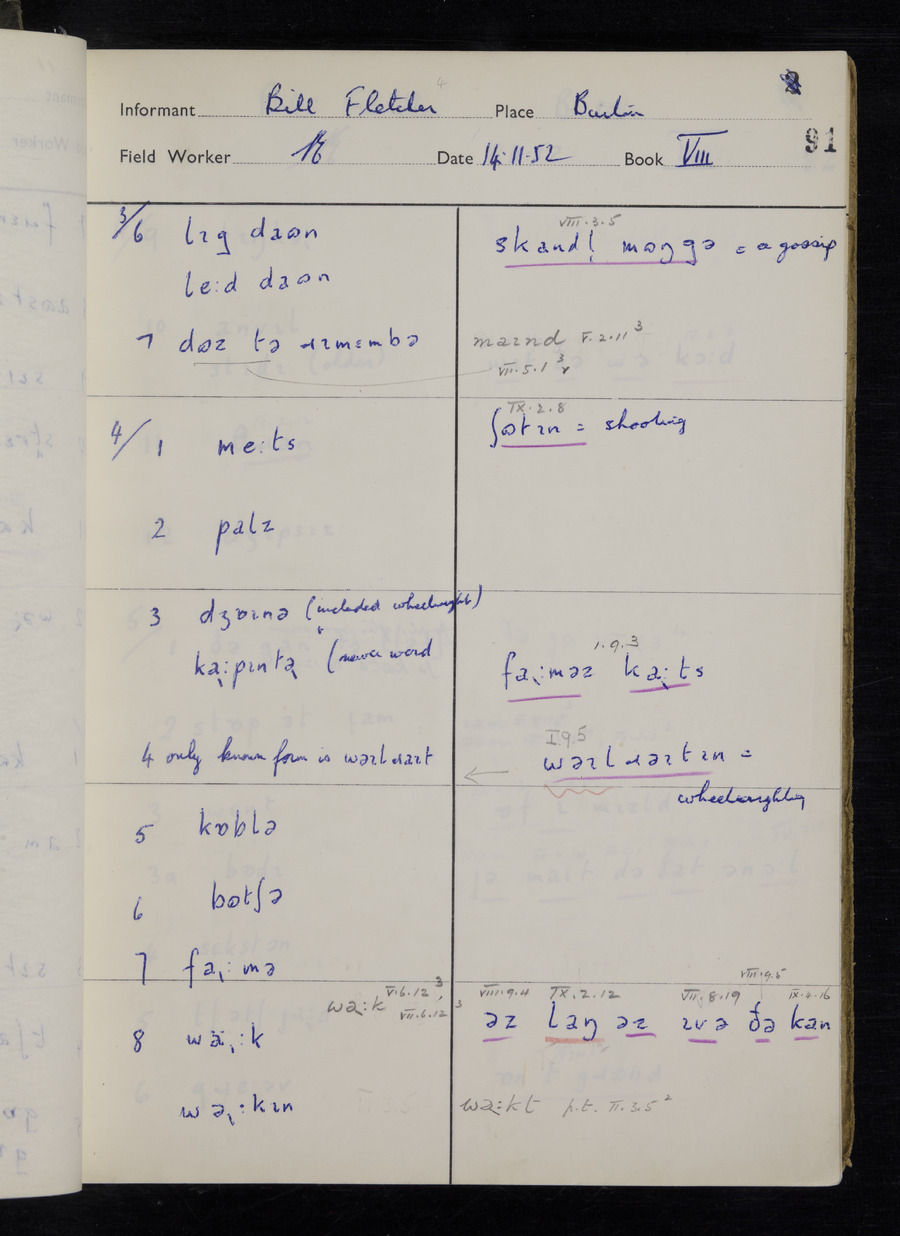 Informant Bill Fletcher Place
91
Field Worker Date 14.11.52 Book VIII
3/6 lɪg daʊn
VIII.3.5
skandl̩ mɒŋgə = a gossip
le:d daʊn
7 dʊz tə ɹɪmɛmbə
maɪnd V.2.11 3
VII.5.1 3
IX.2.8
ʃʊtɪn = shooting
4/1 me:ts
2 palz
3 dʒɒɪnə (included wheelwright)
ka̜:pɪntə (newer word
1.9.3
fa̜:məz ka̜:ts
4 only known form is wəɪlɹaɪt
I.9.5
← wəɪlɹəɪtɪn =
wheelwrighting
5 kɒblə
6 bʊtʃə
7 fa̜:mə
wə:k V.6.12 3,
VII.6.12 3
VIII.9.4 IX.2.12 VII.8.19 VIII.9.5 IX.4.16
8 wə̜:k
əz laŋ əz ɪvə ðə kan
wə̜:kɪn
wə:kt p.t. II.3.5 2